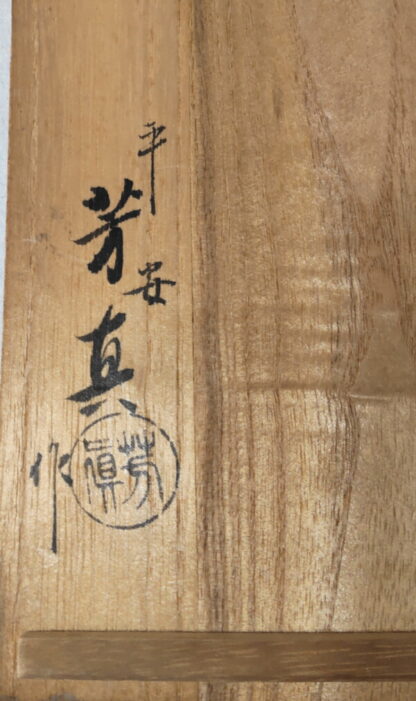 平安
芳真
作
芳眞